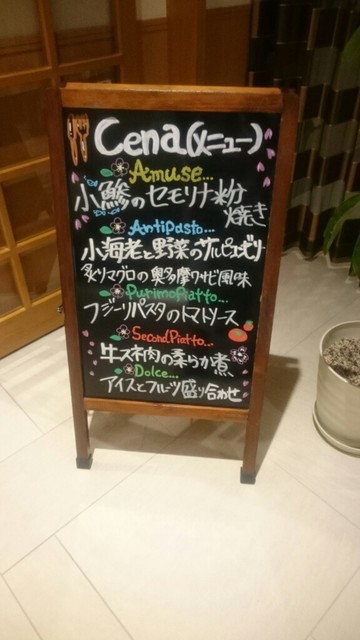 Cena(メニュー)
Amuse...
小鯵のセモリナ粉
焼き
Antipasto...
小海老と野菜のサルピコゼリー
炙りマグロの奥多摩ワサビ風味
PurimoPiatto...
フジーリパスタのトマトソース
SecondPiatto...
牛スネ肉の柔らか煮
Dolce...
アイスとフルーツ盛り合わせ